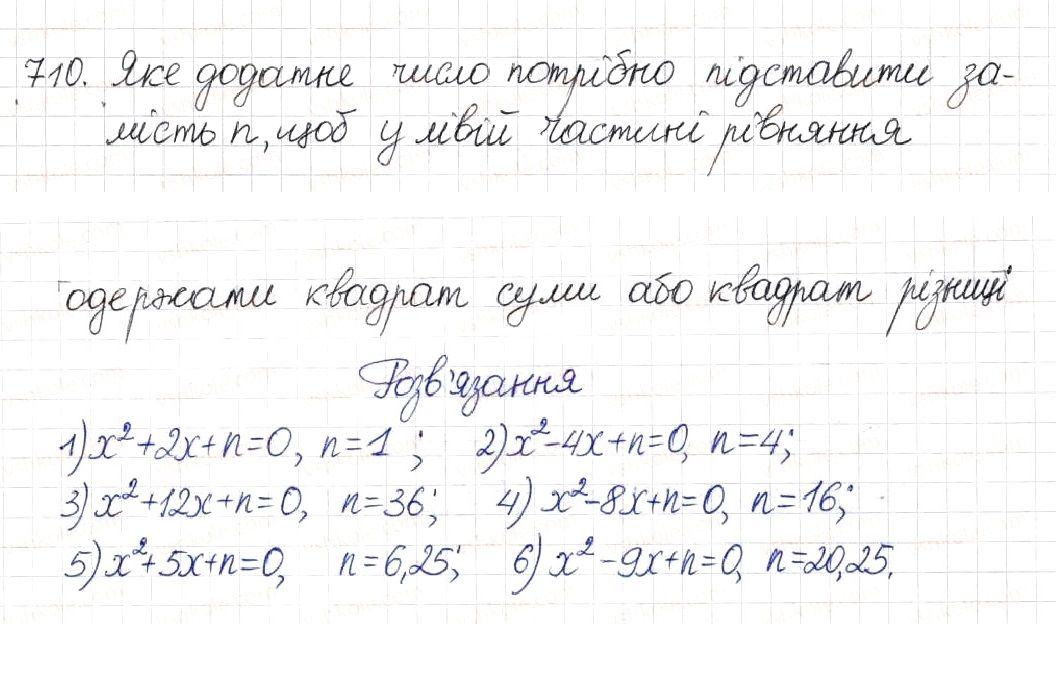 710. Яке додатне число потрібно підставити за-
мість n, щоб у лівій частині рівняння
одержати квадрат суми або квадрат різниці
Розв'язання
1) x²+2x+n=0, n=1 ; 2) x²-4x+n=0, n=4;
3) x²+12x+n=0, n=36; 4) x²-8x+n=0, n=16;
5) x²+5x+n=0, n=6,25; 6) x²-9x+n=0, n=20,25.